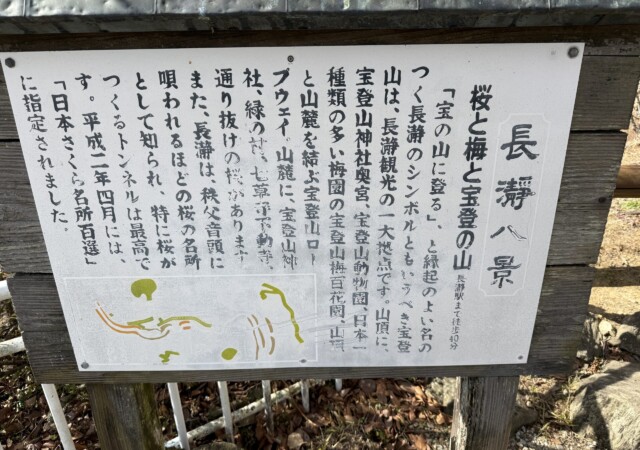 長瀞八景
桜と梅と宝登の山
長瀞駅まで徒歩40分
「宝の山に登る」、と縁起のよい名の
つく長瀞のシンボルともいうべき宝登
山は、長瀞観光の一大地点です。山頂に、
宝登山神社奥宮、宝登山動物園、日本一
種類の多い梅園の宝登山梅百花園、山頂
と山麓を結ぶ宝登山ロー
プウェイ、山麓に、宝登山神
社、緑の村、七草寺不動寺、
通り抜けの桜があります
また、長瀞は、秩父音頭に
唄われるほどの桜の名所
として知られ、特に桜が
つくるトンネルは最高で
す。平成二年四月には、
「日本さくら名所百選」
に指定されました。